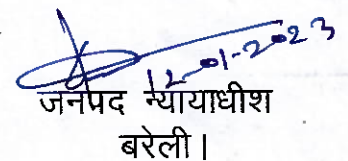 12-01-2023
जनपद न्यायाधीश
बरेली।